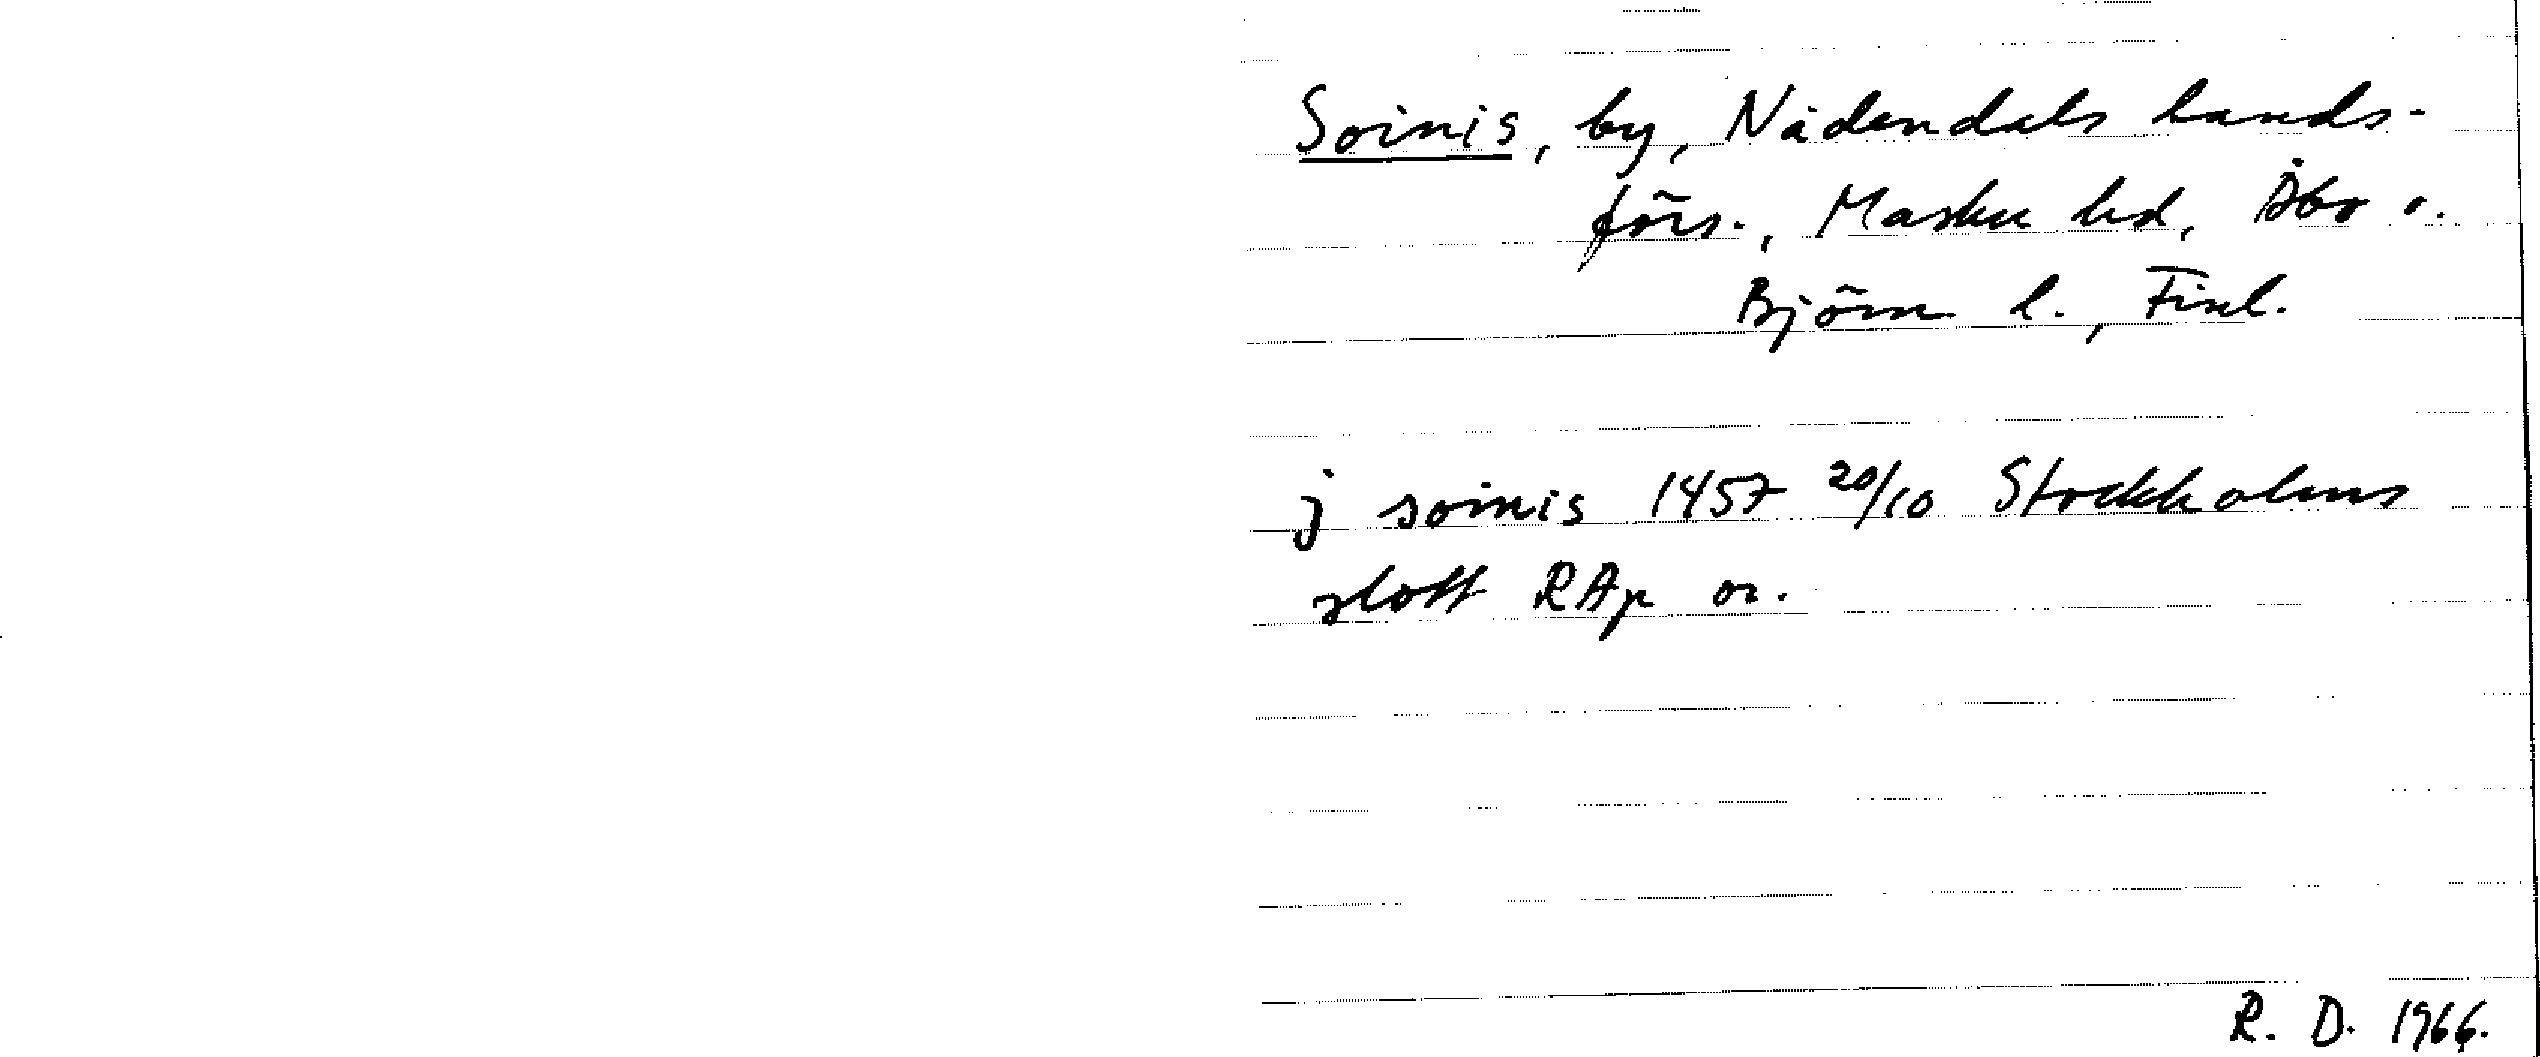 Soinis, by, Nådendals lands-
förs., Masku hd, Åbo o.
Björn. l., Finl.
j soinis 1457 20/10 Stockholms
slott RAp or.
R. D. 1966.